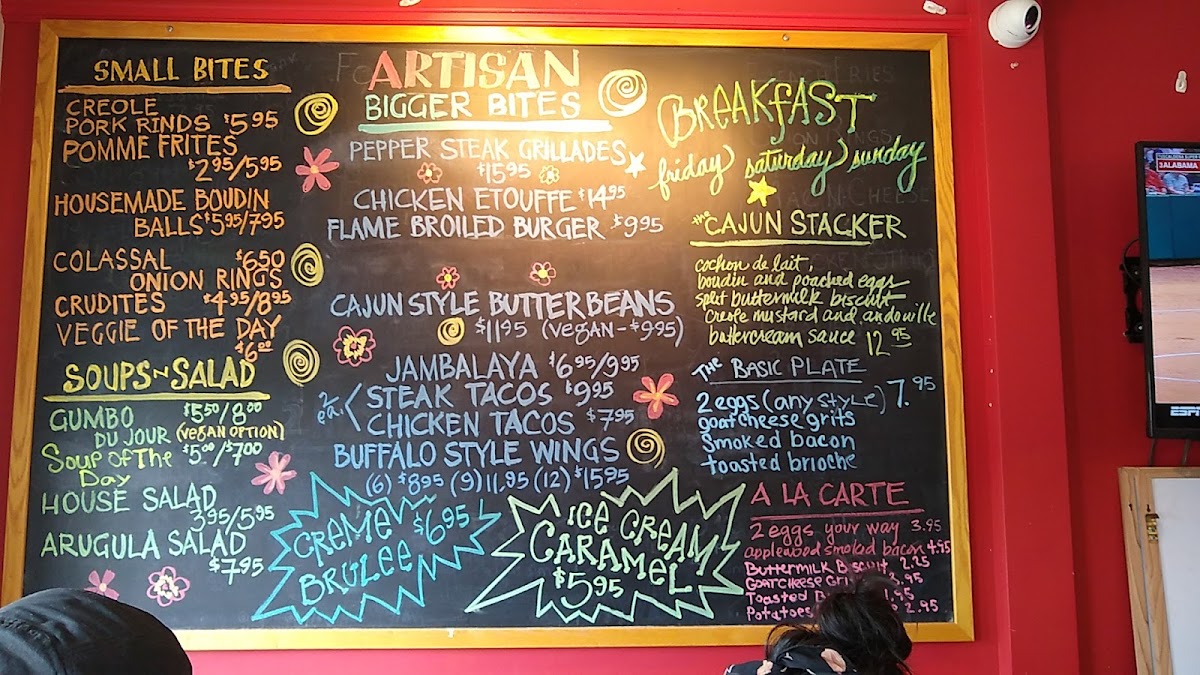 SMALL BITES
CREOLE
PORK RINDS $5.95
POMME FRITES
$2.95/5.95
HOUSEMADE BOUDIN
BALLS $5.95/7.95
COLASSAL $6.50
ONION RINGS
CRUDITES $4.95/8.95
VEGGIE OF THE DAY
$6.00
SOUPS N SALAD
GUMBO $5.50/8.00
DU JOUR (VEGAN OPTION)
Soup OF THE $5.00/$7.00
Day
HOUSE SALAD
3.95/5.95
ARUGULA SALAD
$7.95
ARTISAN
BIGGER BITES
PEPPER STEAK GRILLADES
$15.95
CHICKEN ETOUFFE $14.95
FLAME BROILED BURGER $9.95
CAJUN STYLE BUTTERBEANS
$11.95 (VEGAN-$9.95)
JAMBALAYA $6.95/9.95
2 ea. STEAK TACOS $9.95
CHICKEN TACOS $7.95
BUFFALO STYLE WINGS
(6) $8.95 (9) 11.95 (12) $15.95
CREME $6.95
BRULEE
ICE CREAM
CARAMEL
$5.95
BREAKfAST
friday saturday sunday
the CAJUN STACKER
cochon de lait,
boudin and poached eggs
split buttermilk biscuit
creole mustard and andouille
buttercream sauce 12.95
THE BASIC PLATE
2 eggs (any STYLE) 7.95
goat cheese grits
smoked bacon
toasted brioche
A LA CARTE
2 eggs your way 3.95
applewood smoked bacon 4.95
Buttermilk Biscuit 2.25
GOAT CHEESE 3.95
Toasted 1.95
Potatoes 2.95
ALABAMA
ESPN